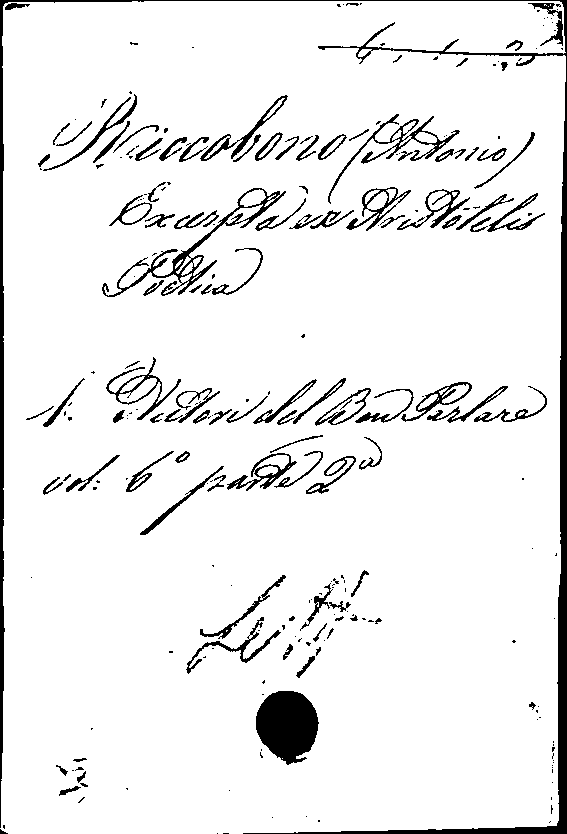 6, 1, 25
Riccobono (Antonio)
Excerpta ex Aristotelis
Poetica
V. Autori del Ben Parlare
vol: 6° parte 2ª
Lett